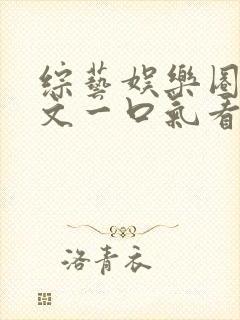 綜藝娛樂圈
文一口氣看
洛青衣